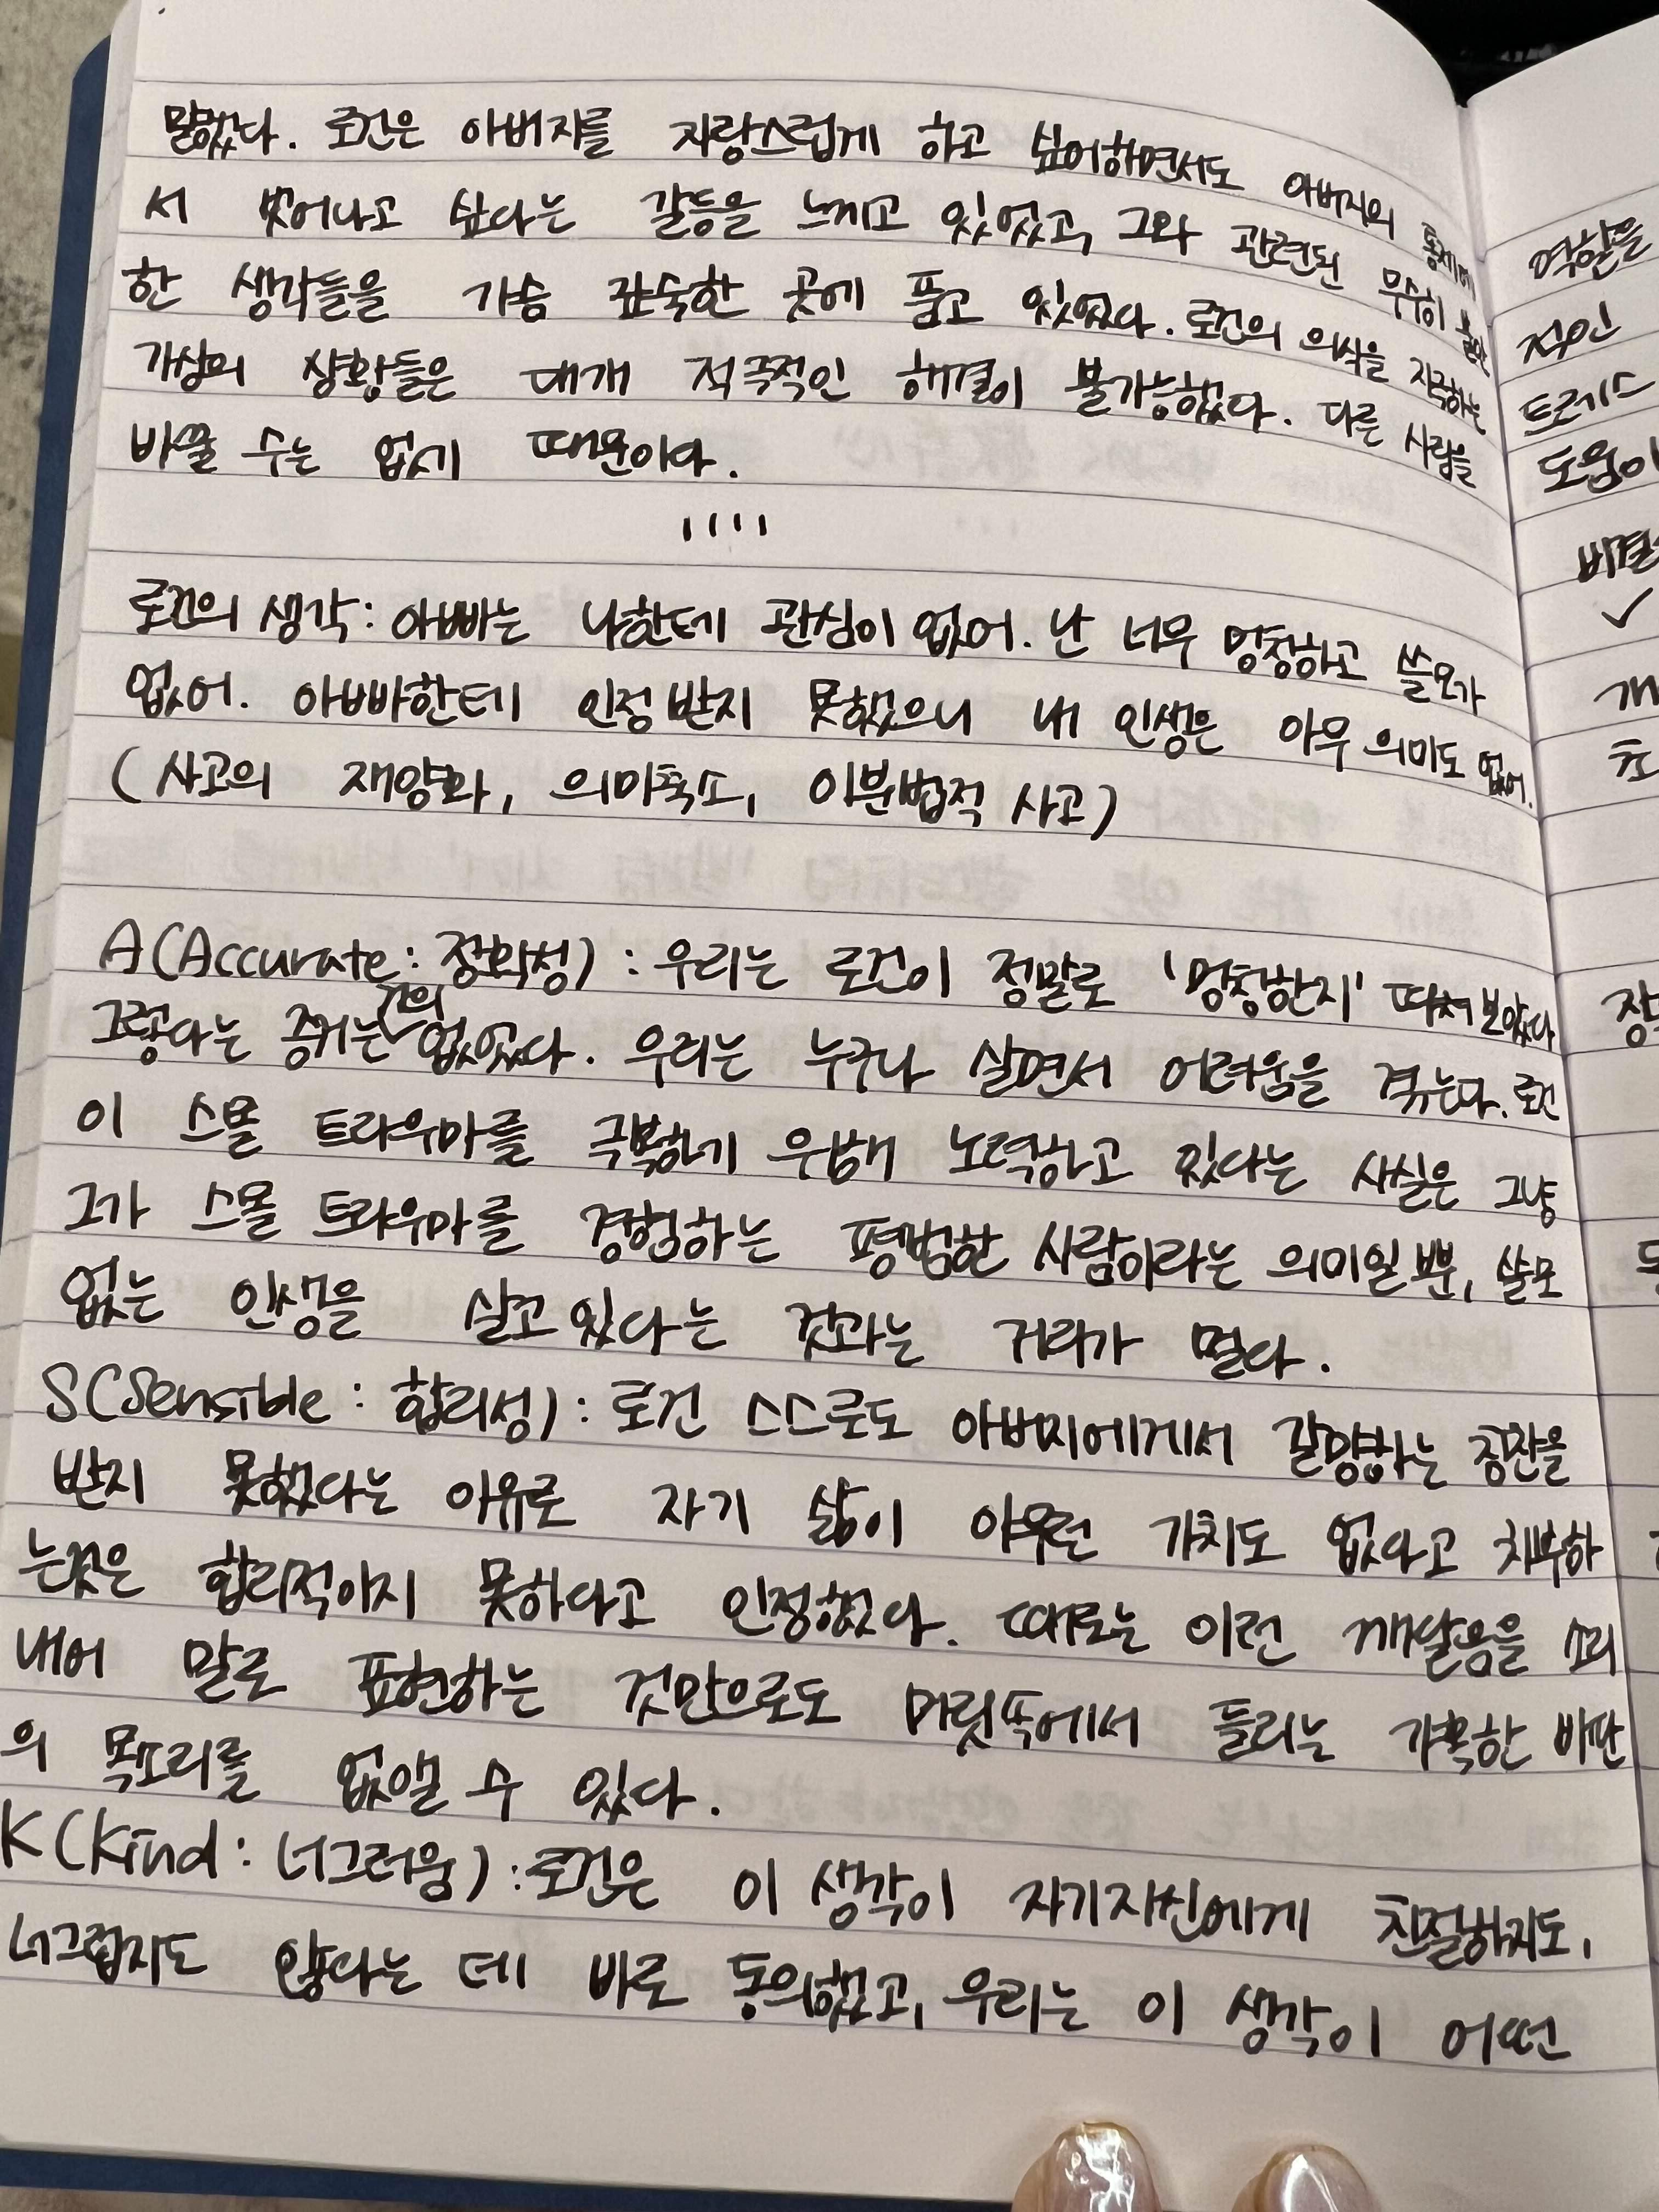 말했다. 로건은 아버지를 자랑스럽게 하고 싶어하면서도 아버지의 통제에
서 벗어나고 싶다는 갈등을 느끼고 있었고, 그와 관련된 무수히 불안
한 생각들을 가슴 깊숙한 곳에 품고 있었다. 로건의 의식을 자극하는
가상의 상황들은 대개 적극적인 해결이 불가능했다. 다른 사람을
바꿀 수는 없기 때문이다.
로건의 생각: 아빠는 나한테 관심이 없어. 난 너무 멍청하고 쓸모가
없어. 아빠한테 인정받지 못했으니 내 인생은 아무 의미도 없어.
(사고의 재앙화, 의미축소, 이분법적 사고)
A(Accurate: 정확성): 우리는 로건이 정말로 '멍청한지' 따져 보았다
그렇다는 증거는 거의 없었다. 우리는 누구나 살면서 어려움을 겪는다. 로건
이 스몰 트라우마를 극복하기 위해 노력하고 있다는 사실은 그냥
그가 스몰 트라우마를 경험하는 평범한 사람이라는 의미일 뿐, 쓸모
없는 인생을 살고 있다는 것과는 거리가 멀다.
S(Sensible: 합리성): 로건 스스로도 아버지에게서 갈망하는 칭찬을
받지 못했다는 이유로 자기 삶이 아무런 가치도 없다고 치부하
는것은 합리적이지 못하다고 인정했다. 때로는 이런 깨달음을 소리
내어 말로 표현하는 것만으로도 머릿속에서 들리는 가혹한 비판
의 목소리를 없앨 수 있다.
K(Kind: 너그러움): 로건은 이 생각이 자기자신에게 친절하지도,
너그럽지도 않다는 데 바로 동의했고, 우리는 이 생각이 어떤
역할을
적인
트레스
도움이